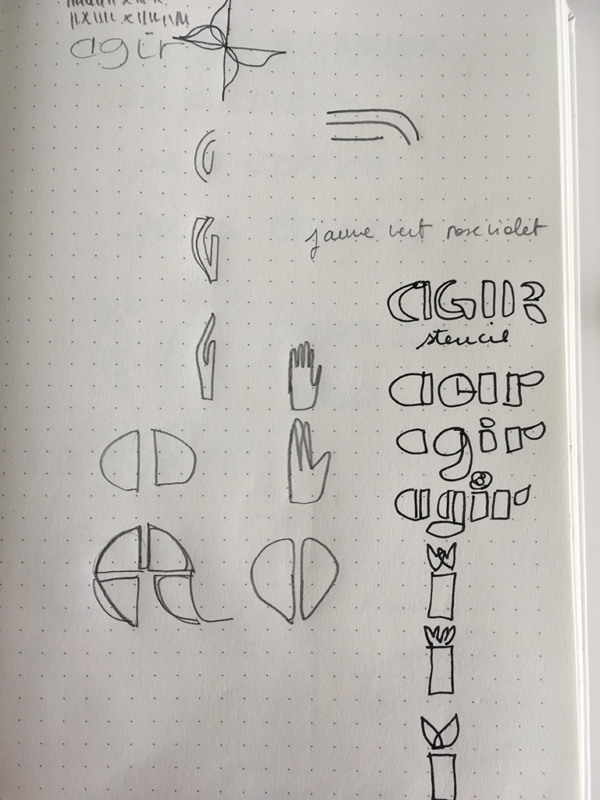 agir
jaune vert rose violet
AGIR
stencil
agir
agir
agir